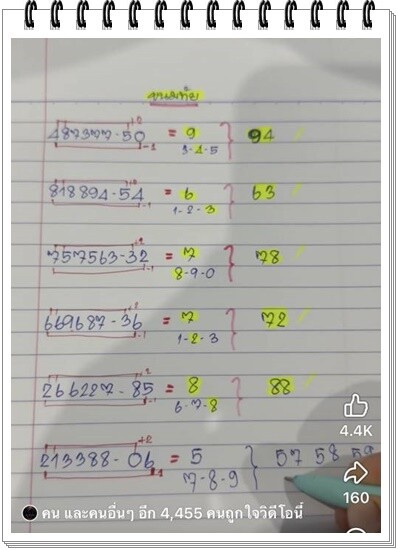 ขนมทัย
+2
487377-50 = 9 } 94
-1 3-4-5
+2
818894-54 = 6 } 63
-1 1-2-3
+2
757563-32 = 7 } 78
-1 8-9-0
+2
669687-36 = 7 } 72
-1 1-2-3
+2
266227-85 = 8 } 88
-1 6-7-8
4.4K
+2
213388-06 = 5 } 57 58 59
-1 7-8-9
160
คน และคนอื่นๆ อีก 4,455 คนถูกใจวิดีโอนี้